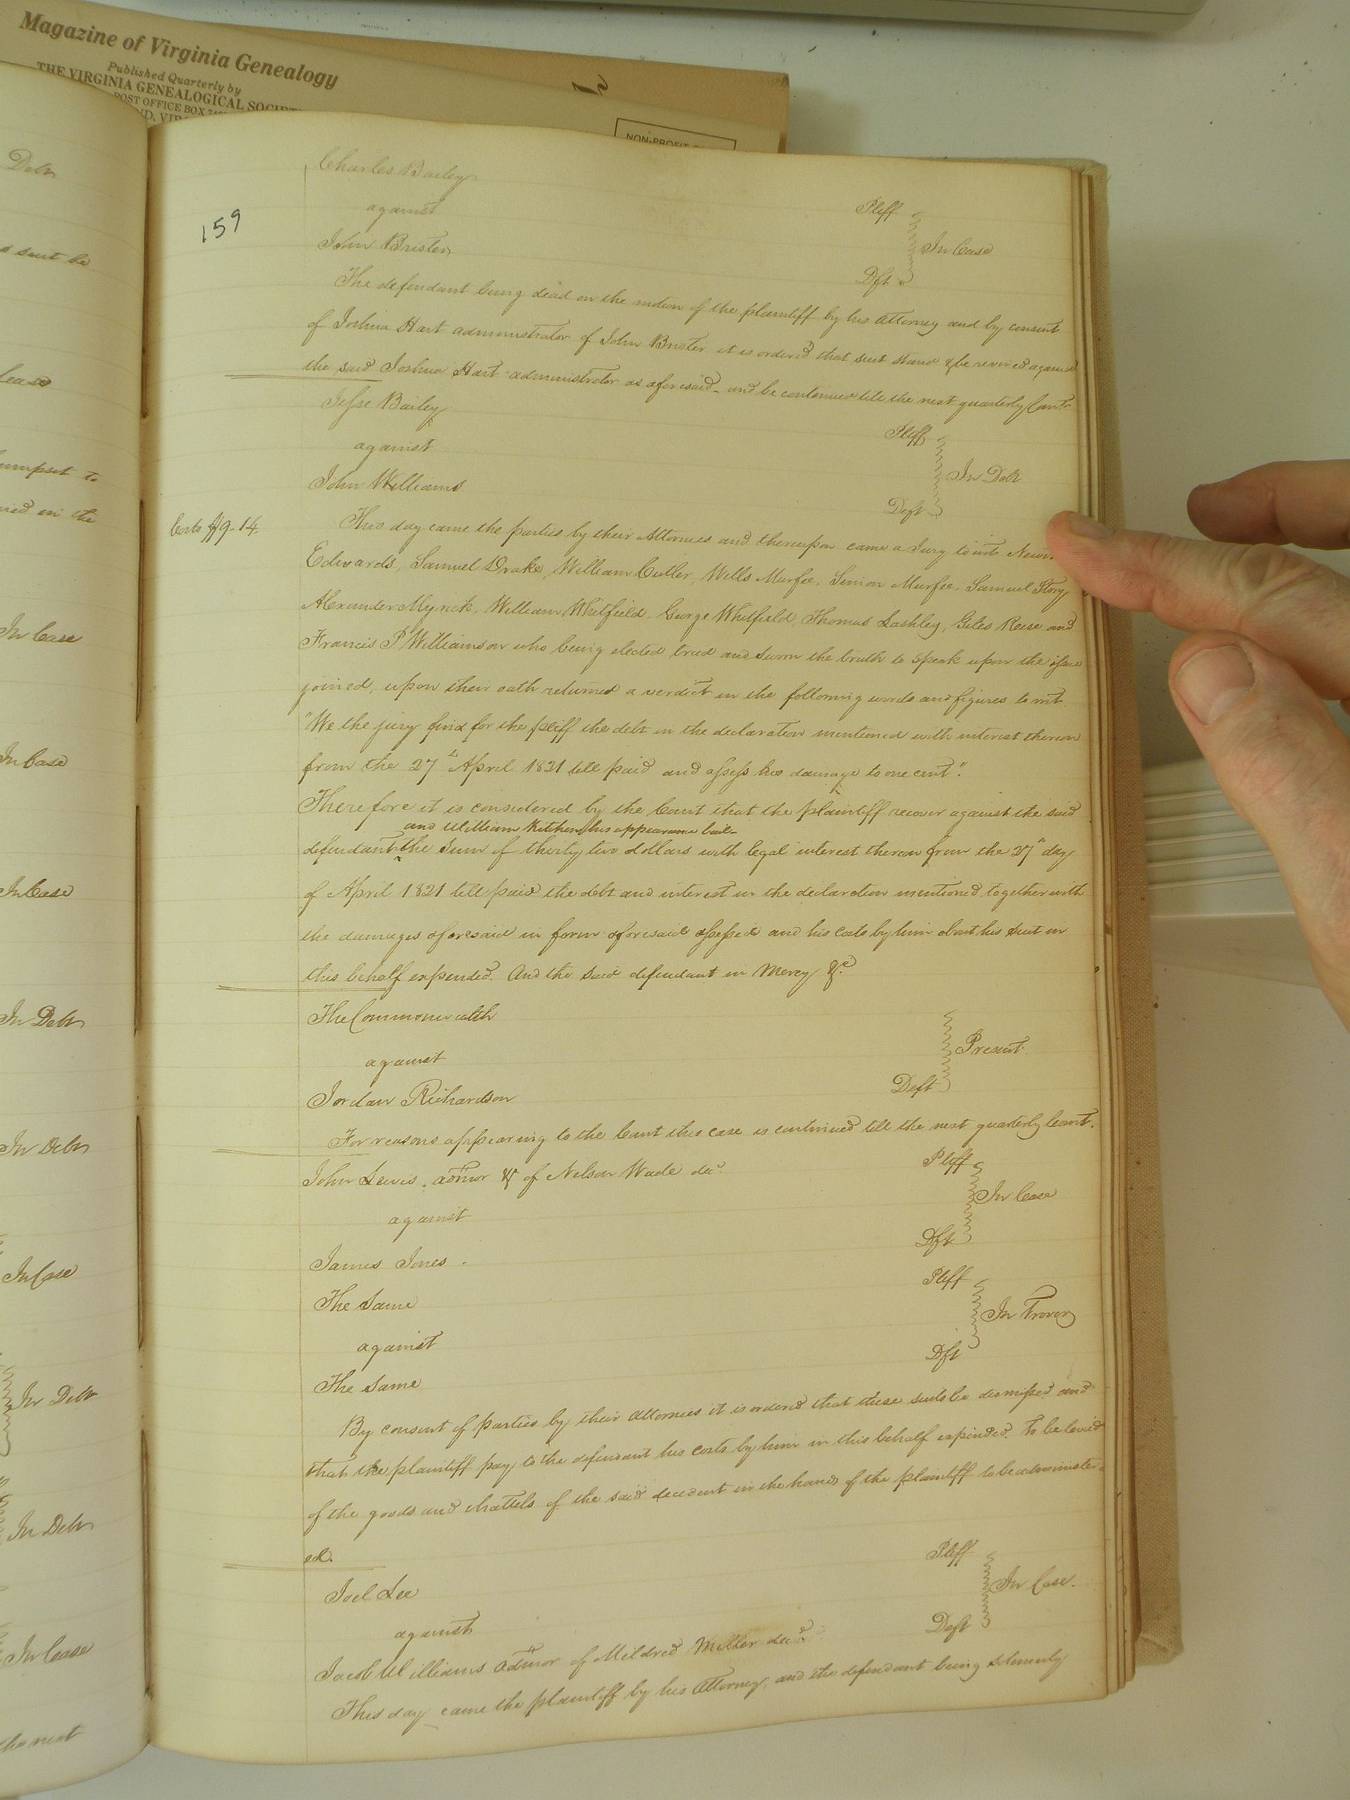 Magazine of Virginia Genealogy
Published Quarterly by
THE VIRGINIA GENEALOGICAL SOCIE
POST OFFICE BOX
NON-PROFIT
159
Charles Bailey
against
Pltff
John Brister
In Case
Dft
The defendant being dead on the motion of the plaintiff by his attorney and by consent
of Joshua Hart administrator of John Brister it is ordered that suit stand & be revived against
the said Joshua Hart administrator as aforesaid - and be continued till the next quarterly Court
Jesse Bailey
Pltff
against
In Debt
John Williams
Deft
Costs $9-14.
This day came the parties by their Attornies and thereupon came a Jury to wit
Edwards, Samuel Drake, William Cutler, Wells Murfee, Simon Murfee, Samuel Story
Alexander Myrick, William Whitfield, George Whitfield, Thomas Lashley, Giles Reese and
Francis P Williamson who being elected tried and sworn the truth to speak upon the issue
joined, upon their oath returned a verdict in the following words and figures to wit
"We the jury find for the pltff the debt in the declaration mentioned with interest thereon
from the 27th April 1821 till paid and assess his damage to one cent".
Therefore it is considered by the Court that the plaintiff recover against the said
and William Kitchen his appearance bail
defendant the Sum of thirty two dollars with legal interest thereon from the 27th day
of April 1821 till paid the debt and interest in the declaration mentioned together with
the damages aforesaid in form aforesaid assessed and his costs by him about his suit in
this behalf expended. And the said defendant in Mercy &c
The Commonwealth
against
Present.
Jordan Richardson
Deft
For reasons appearing to the Court this case is continued till the next quarterly Court.
John Lewis, admor &c of Nelson Wade decd
Pltff
against
In Case
James Jones.
Dft
The Same
Pltff
against
In Trover
The Same
Dft
By consent of parties by their attornies it is ordered that these suits be dismissed and
that the plaintiff pay to the defendant his costs by him in this behalf expended. To be levied
of the goods and chattels of the said decedent in the hands of the plaintiff to be administer
ed.
Joel Lee
Pltff
against
In Case.
Jacob Williams admor of Mildred Miller decd.
Deft
This day came the plaintiff by his Attorney, and the defendant being solemnly
Debt
sent be
umpsit to
in the
In Case
In Case
In Case
In Debt
In Debt
In Case
In Debt
In Debt
In Case